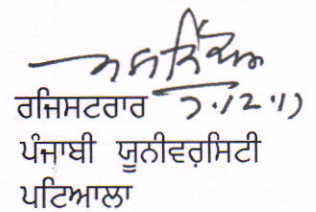 ਰਜਿਸਟਰਾਰ 7.12.17
ਪੰਜਾਬੀ ਯੂਨੀਵਰਸਿਟੀ
ਪਟਿਆਲਾ